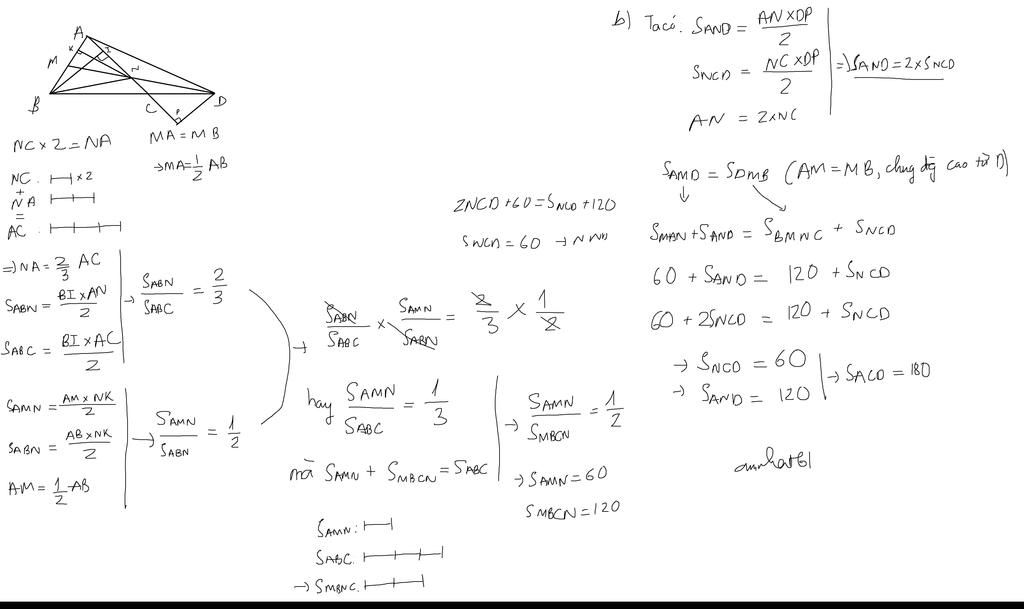 A
K
I
M
N
B
C
P
D
NC × 2 = NA
MA = MB
→ MA = 1/2 AB
NC : × 2
+
NA
=
AC :
⇒ NA = 2/3 AC
S_ABN = BI × AN / 2
S_ABC = BI × AC / 2
→ S_ABN / S_ABC = 2/3
S_AMN = AM × NK / 2
S_ABN = AB × NK / 2
AM = 1/2 AB
→ S_AMN / S_ABN = 1/2
2NCD + 60 = S_NCD + 120
S_NCD = 60 →
→ S_ABN / S_ABC × S_AMN / S_ABN = 2/3 × 1/2
hay S_AMN / S_ABC = 1/3
mà S_AMN + S_MBCN = S_ABC
→ S_AMN / S_MBCN = 1/2
→ S_AMN = 60
S_MBCN = 120
S_AMN :
S_ABC :
→ S_MBNC :
b) Ta có : S_AND = AN × DP / 2
S_NCD = NC × DP / 2
AN = 2 × NC
⇒ S_AND = 2 × S_NCD
S_AMD = S_DMB (AM = MB, chung đg cao từ D)
↓
S_MAN + S_AND = S_BMNC + S_NCD
60 + S_AND = 120 + S_NCD
60 + 2S_NCD = 120 + S_NCD
→ S_NCD = 60
→ S_AND = 120
→ S_ACD = 180